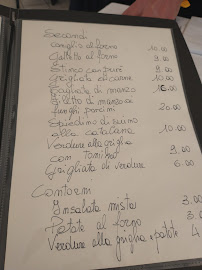 Secondi
coniglio al forno 10.00
Galletto al forno 9.00
Stinco con purè 9.00
Grigliata di carne 10.00
Tagliata di manzo 16.00
Filetto di manzo ai
funghi porcini 20.00
Spiedino di suino
alla catalana 10.00
Verdure alla griglia
con Tomino 9.00
Grigliata di verdure 6.00
Contorni
Insalata mista 3.00
Patate al forno 3.00
Verdure alla griglia e patate 4